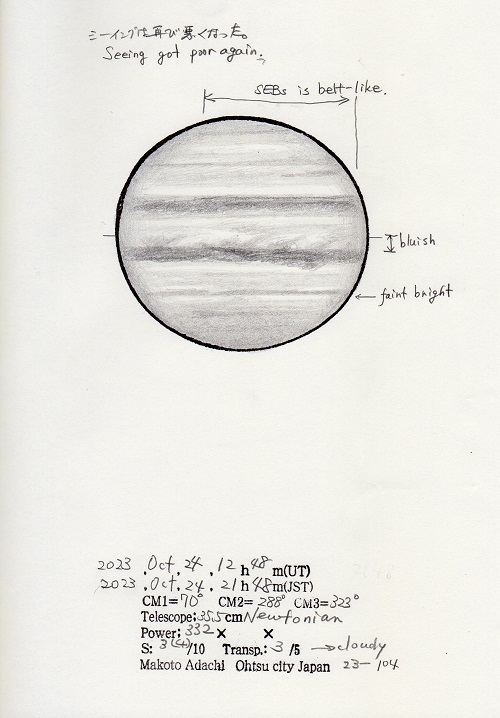 シーイングは再び悪くなった。
Seeing got poor again.
SEBs is belt-like.
bluish
faint bright
2023 . Oct. 24 . 12 h 48 m(UT)
2023 . Oct. 24 . 21 h 48 m(JST)
CM1= 70° CM2= 288° CM3= 323°
Telescope: 35.5 cm Newtonian
Power: 332 × ×
S: 3(4)/10 Transp.: 3 /5 → cloudy
Makoto Adachi Ohtsu city Japan 23-104